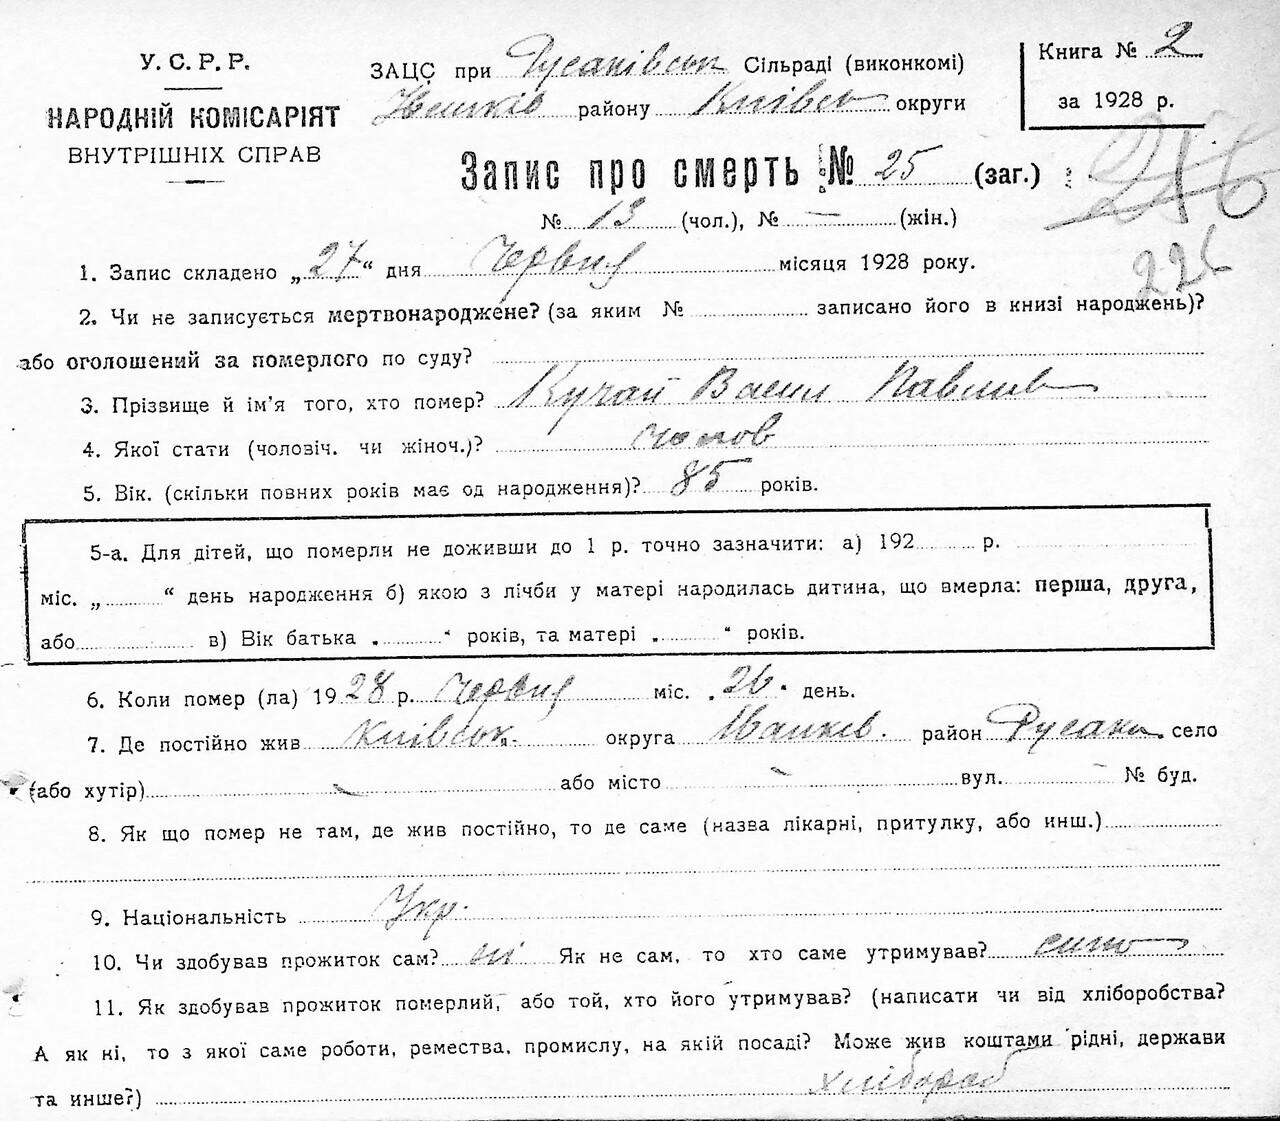 У. С. Р. Р.
НАРОДНІЙ КОМІСАРІЯТ
ВНУТРІШНІХ СПРАВ
ЗАЦС при Русаківськ Сільраді (виконкомі)
району Київськ округи
Книга № 2
за 1928 р.
Запис про смерть № 25 (заг.)
256
№ 13 (чол.), № — (жін.)
226
1. Запис складено „27“ дня Червня місяця 1928 року.
2. Чи не записується мертвонароджене? (за яким № записано його в книзі народжень)?
або оголошений за померлого по суду?
3. Прізвище й ім'я того, хто помер? Кучай Васил Павлов
4. Якої стати (чоловіч. чи жіноч.)? чолов
5. Вік. (скільки повних років має од народження)? 85 років.
5-а. Для дітей, що померли не доживши до 1 р. точно зазначити: а) 192 р.
міс. „ “ день народження б) якою з лічби у матері народилась дитина, що вмерла: перша, друга,
або в) Вік батька „ “ років, та матері „ “ років.
6. Коли помер (ла) 1928 р. Червня міс. „26“ день.
7. Де постійно жив Київськ. округа Іванків. район Русаки село
(або хутір) — або місто — вул. — № буд.
8. Як що помер не там, де жив постійно, то де саме (назва лікарні, притулку, або инш.)
9. Національність Укр.
10. Чи здобував прожиток сам? ні Як не сам, то хто саме утримував? сини
11. Як здобував прожиток померлий, або той, хто його утримував? (написати чи від хліборобства?
А як ні, то з якої саме роботи, ремества, промислу, на якій посаді? Може жив коштами рідні, держави
та инше?) хлібороб